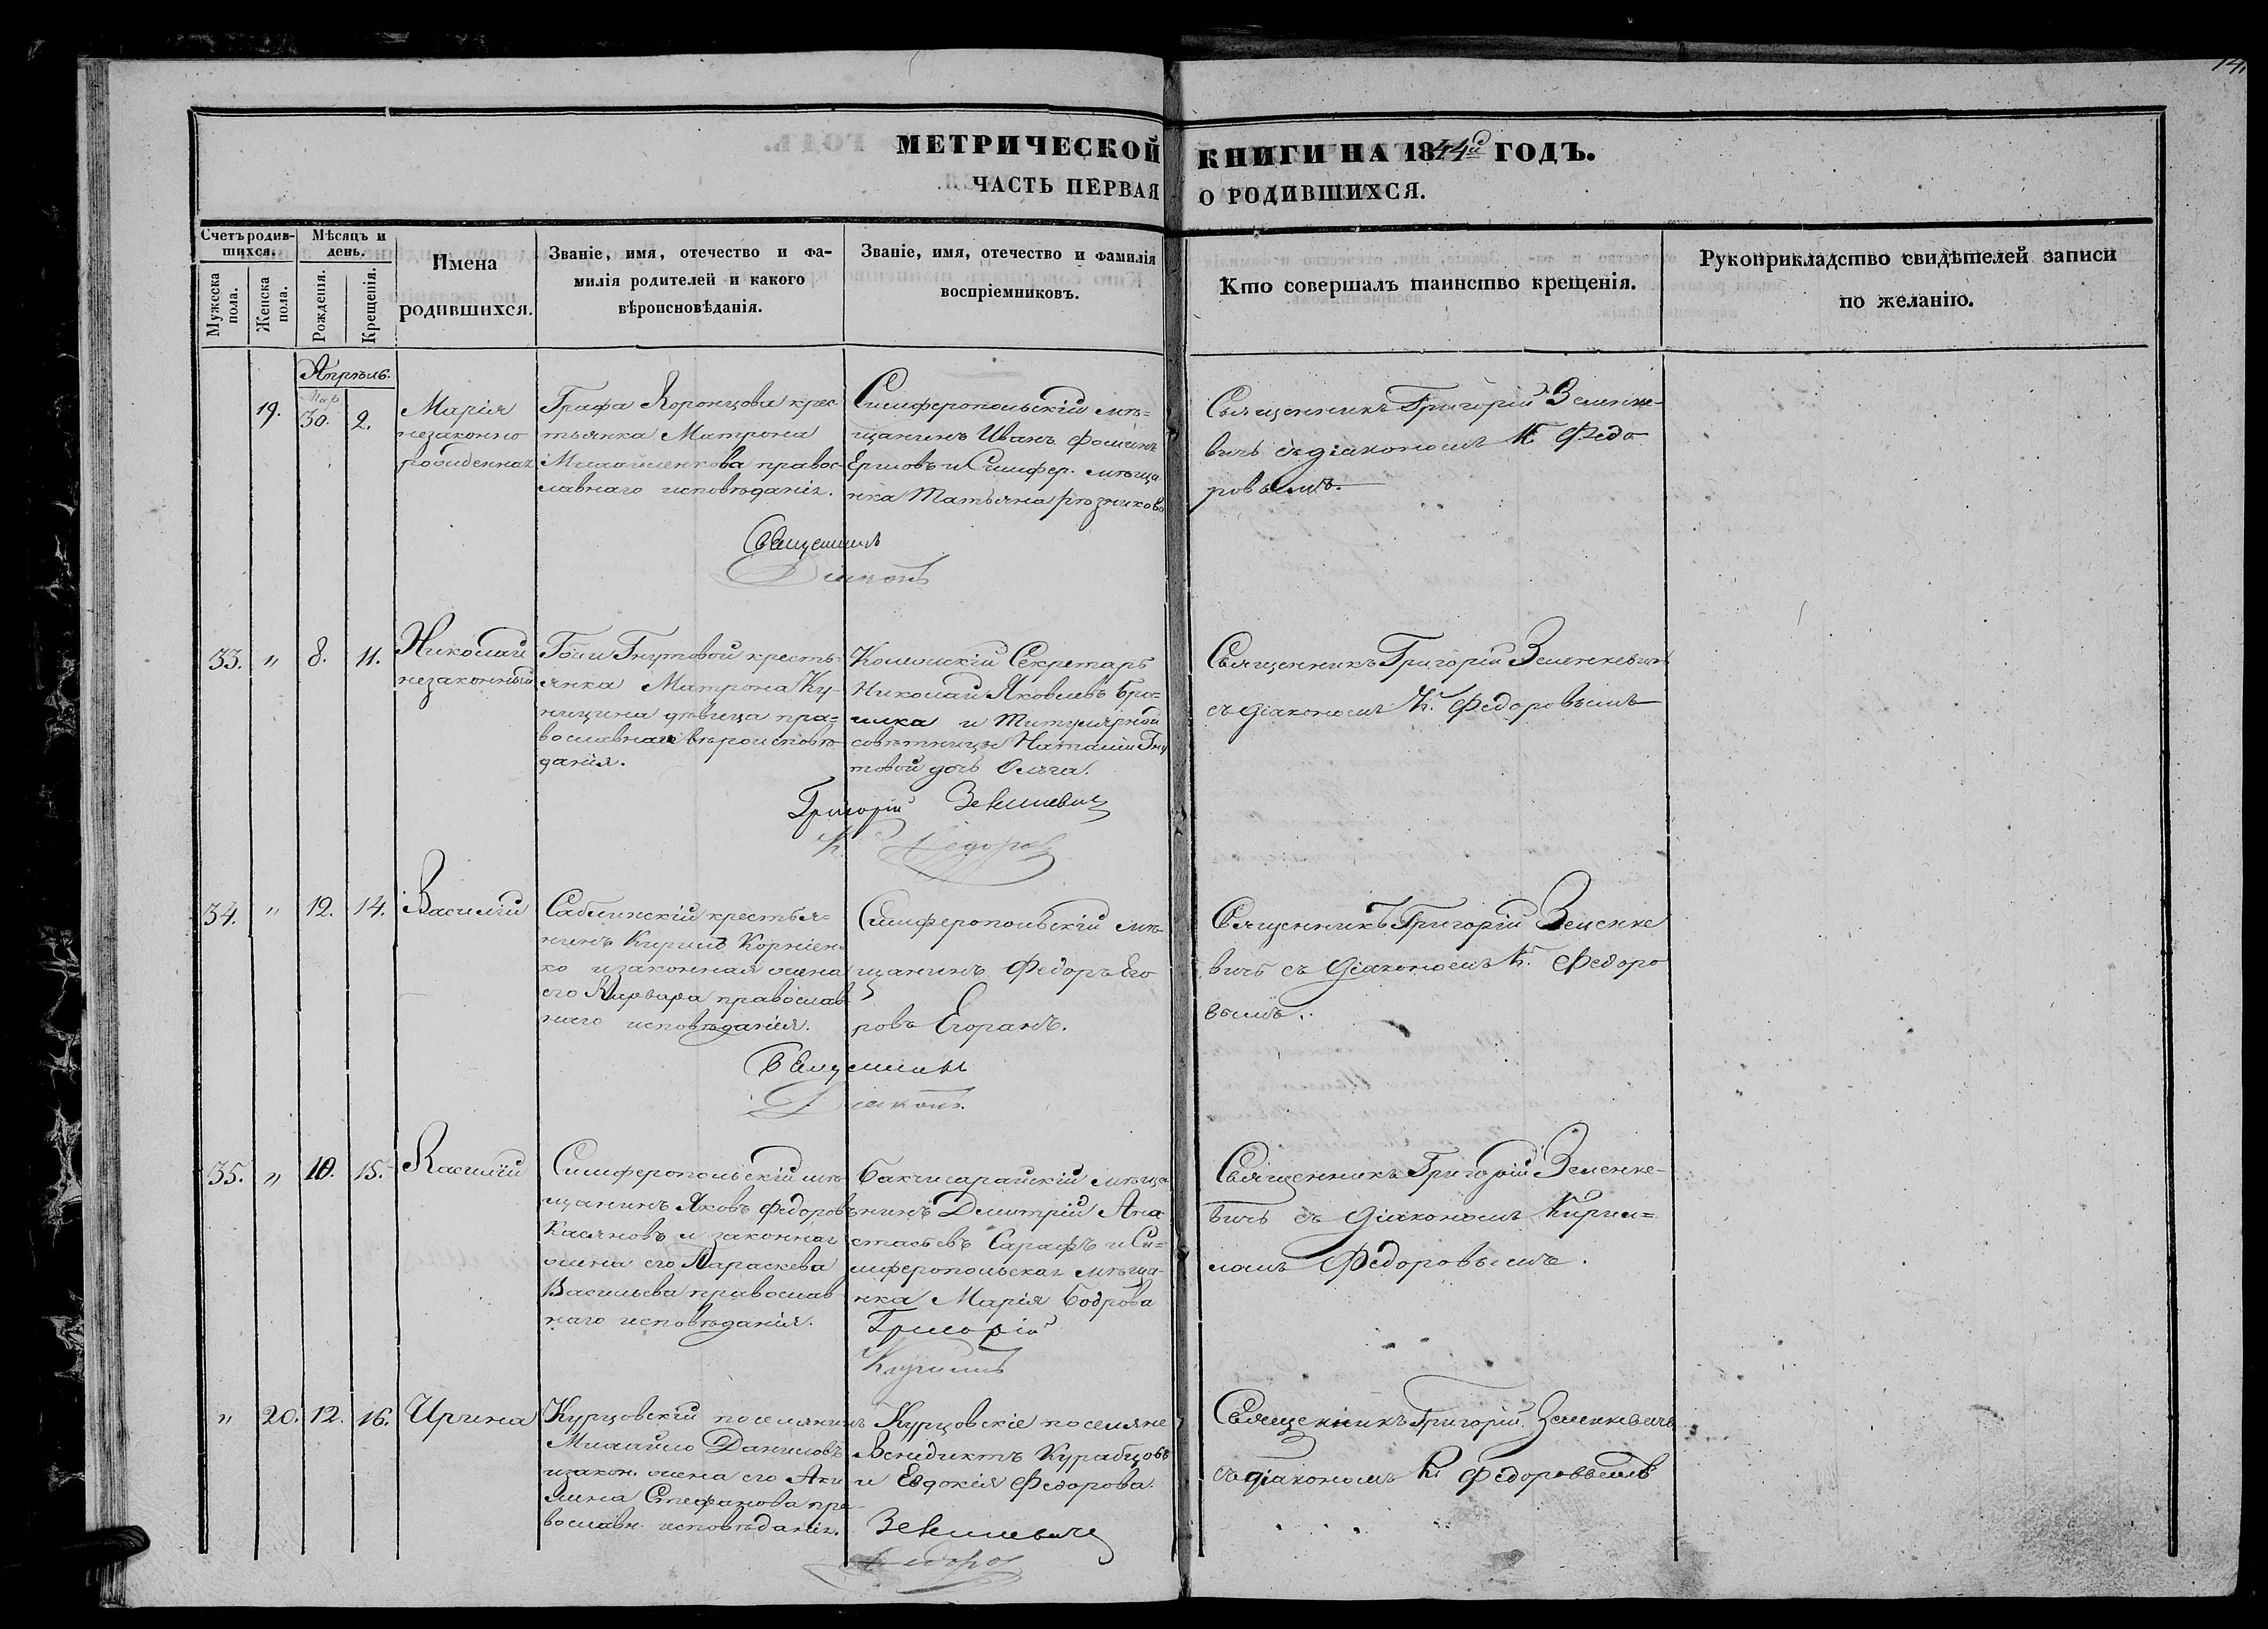 14.
МЕТРИЧЕСКОЙ КНИГИ НА 1844й ГОДЪ.
ЧАСТЬ ПЕРВАЯ О РОДИВШИХСЯ.
Счетъ родив-
шихся.
Мужеска
пола.
Женска
пола.
Мѣсяцъ и
день.
Рожденія.
Крещенія.
Имена
родившихся.
Званіе, имя, отечество и фа-
милія родителей и какого
вѣроисповѣданія.
Званіе, имя, отечество и фамилія
воспріемниковъ.
Кто совершалъ таинство крещенія.
Рукоприкладство свидѣтелей записи
по желанію.
Апрѣль.
19.
Мар
30.
2.
Марія
незаконно
рожденная
Графа Воронцова крес
тьянка Матрона
правос-
лавнаго исповѣданія.
Симферопольскій мѣ=
щанинъ Иванъ Фоминъ
Ершовъ и Симфер. мѣща
нка Татьяна Рѣзникова
Священникъ Григорій Зеленке-
вичь съ діакономъ К. Федо
ровымъ.
Священникъ
Діаконъ
33. " 8. 11.
Николай
незаконный
Г-жи Гнутовой кресть-
янка Матрона Ку-
ницина дѣвица пра=
вославнаго вѣроисповѣ-
данія.
Колежскій Секретарь
Николай Яковлевъ
и Титулярной
совѣтницы Наталіи Гну
товой дочь Ольга.
Священникъ Григорій Зеленкевичь
съ діакономъ К. Федоровымъ
Григорій Зеленкевичь
К. Федоровъ
34. " 12. 14.
Василій
Саблинскій крестья=
нинъ Кирилъ Корніен-
ко и законная жена
его Варвара православ
наго исповѣданія.
Симферопольскій мѣ-
щанинъ Федоръ Его
ровъ Егоранъ.
Священникъ Григорій Зеленке
вичь съ діакономъ К. Федоро
вымъ.
Священникъ
Діаконъ.
35. " 10. 15.
Василій
Симферопольскій мѣ
щанинъ Яковъ Федоровъ
Касяновъ и законная
жена его Параскева
Васильева православ
наго исповѣданія.
Бакчисарайскій мѣща
нинъ Димитрій Ана
стасьевъ Сарафъ и Си=
мферопольская мѣща-
нка Марія Бодрова
Священникъ Григорій Зеленке-
вичь съ діакономъ Кирил=
ломъ Федоровымъ.
Григорій
Кирилъ
" 20. 12. 16.
Ирина
Курцовскій поселянинъ
Михайло Даниловъ
и закон. жена его Аки
лина Стефанова пра-
вославн. исповѣданія.
Курцовскіе поселяне
Венидиктъ Курабцовъ
и Евдокія Федорова.
Священникъ Григорій Зеленкевичь
съ діакономъ К. Федоровымъ
Зеленкевичь
Федоровъ